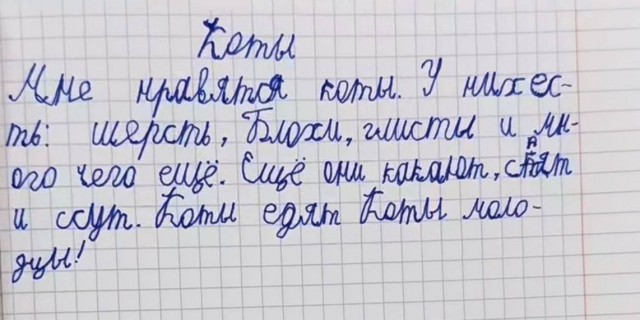 Коты
Мне нравятся коты. У них ес-
ть: шерсть, Блохи, глисты и мн-
ого чего ещё. Ещё они какают, спят
и ссут. Коты едят Коты моло-
дцы!